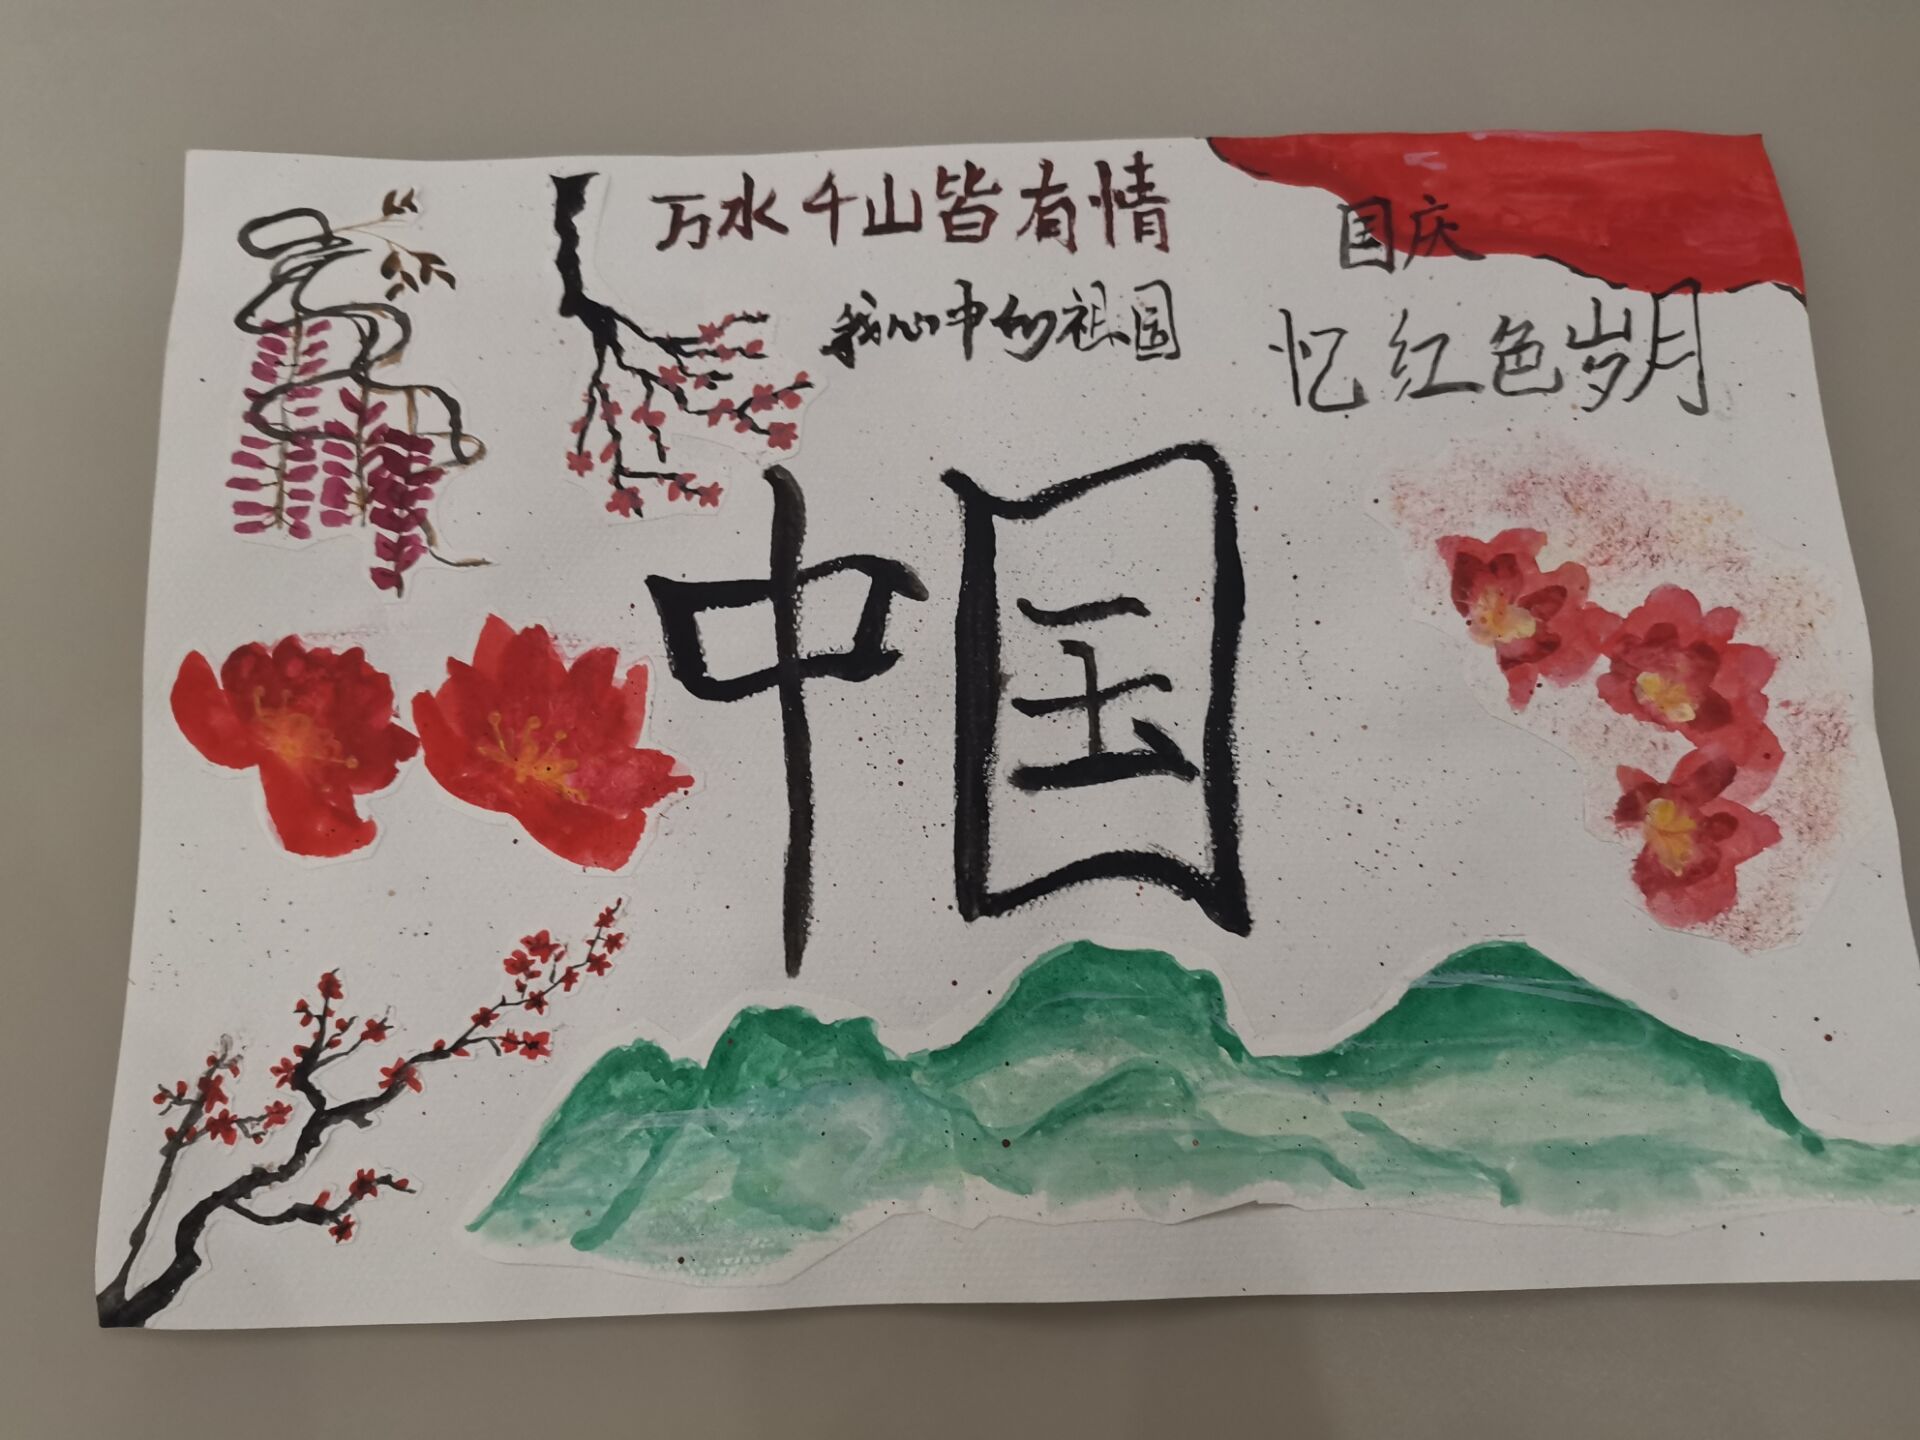 万水千山皆有情
我心中的祖国
国庆
忆红色岁月
中国